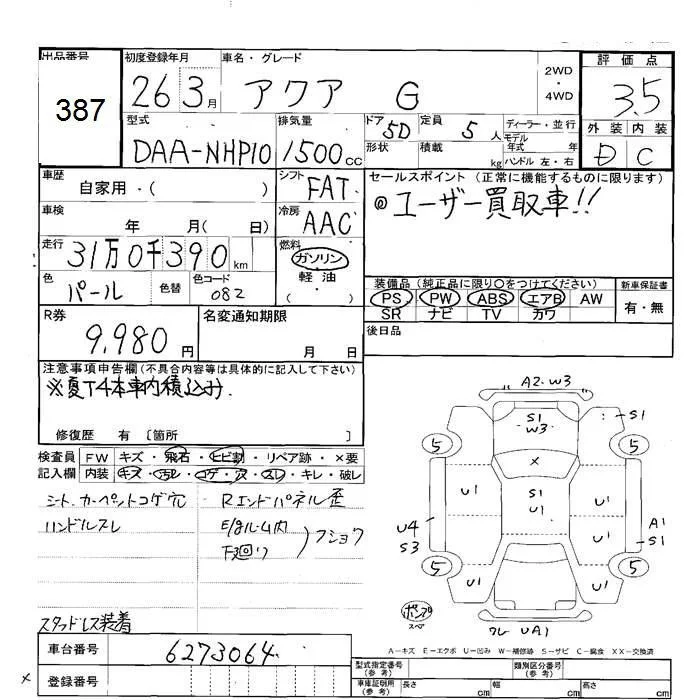 出品番号 初度登録年月 車名・グレード 2WD ・ 4WD 評価点
387 26 3月 アクア G 3.5
型式 排気量 ドア 5D 定員 5人 ディーラー・並行 外装 内装
DAA-NHP10 1500cc 形状 積載 kg モデル年式 年 ハンドル 左・右 D C
車歴 自家用・( ) シフト FAT セールスポイント(正常に機能するものに限ります)
車検 年 月( 日) 冷房 AAC ◎ユーザー買取車!!
走行 31万0千390km 燃料 ガソリン 軽油
色 パール 色替 色コード 082 ・( )
装備品(純正品に限り○をつけてください) 新車保証書
PS PW ABS エアB AW 有・無
SR ナビ TV カワ
R券 9,980円 名変通知期限 月 日 後日品
注意事項申告欄(不具合内容等は具体的に記入して下さい)
※夏T4本車内積込み.
修復歴 有〔箇所 〕
検査員記入欄 FW キズ・飛石・ヒビ割・リペア跡・×要
内装 キズ・汚レ・コゲ・穴・スレ・キレ・破レ
シート、カーペットコゲ穴 Rエンドパネル歪
ハンドルスレ E/gルーム内 下廻り フショク
スタッドレス装着
A2.W3
S1 W3 S1
5 5
×
U1 S1 U1 U1
U4 S3 A1 S1
5 5
U1 U1
ポンプ スペア
ワレ UA1
A−キズ E−エクボ U−凹み W−補修跡 S−サビ C−腐食 XX−交換済
車台番号 6273064
登録番号
型式指定番号(参考) 類別区分番号(参考)
車庫証明用(参考) 長さ cm 幅 cm 高さ cm